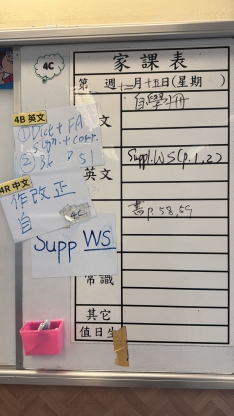 4C
家課表
第 週 十二月十五日(星期 )
自學冊
文
4B 英文
① Dict + FA
sign. + corr.
②
英文
Suppl. WS (p.1, 2)
4R 中文
作改正
自
4C
書p.58,59
Supp WS
常識
其它
值日生